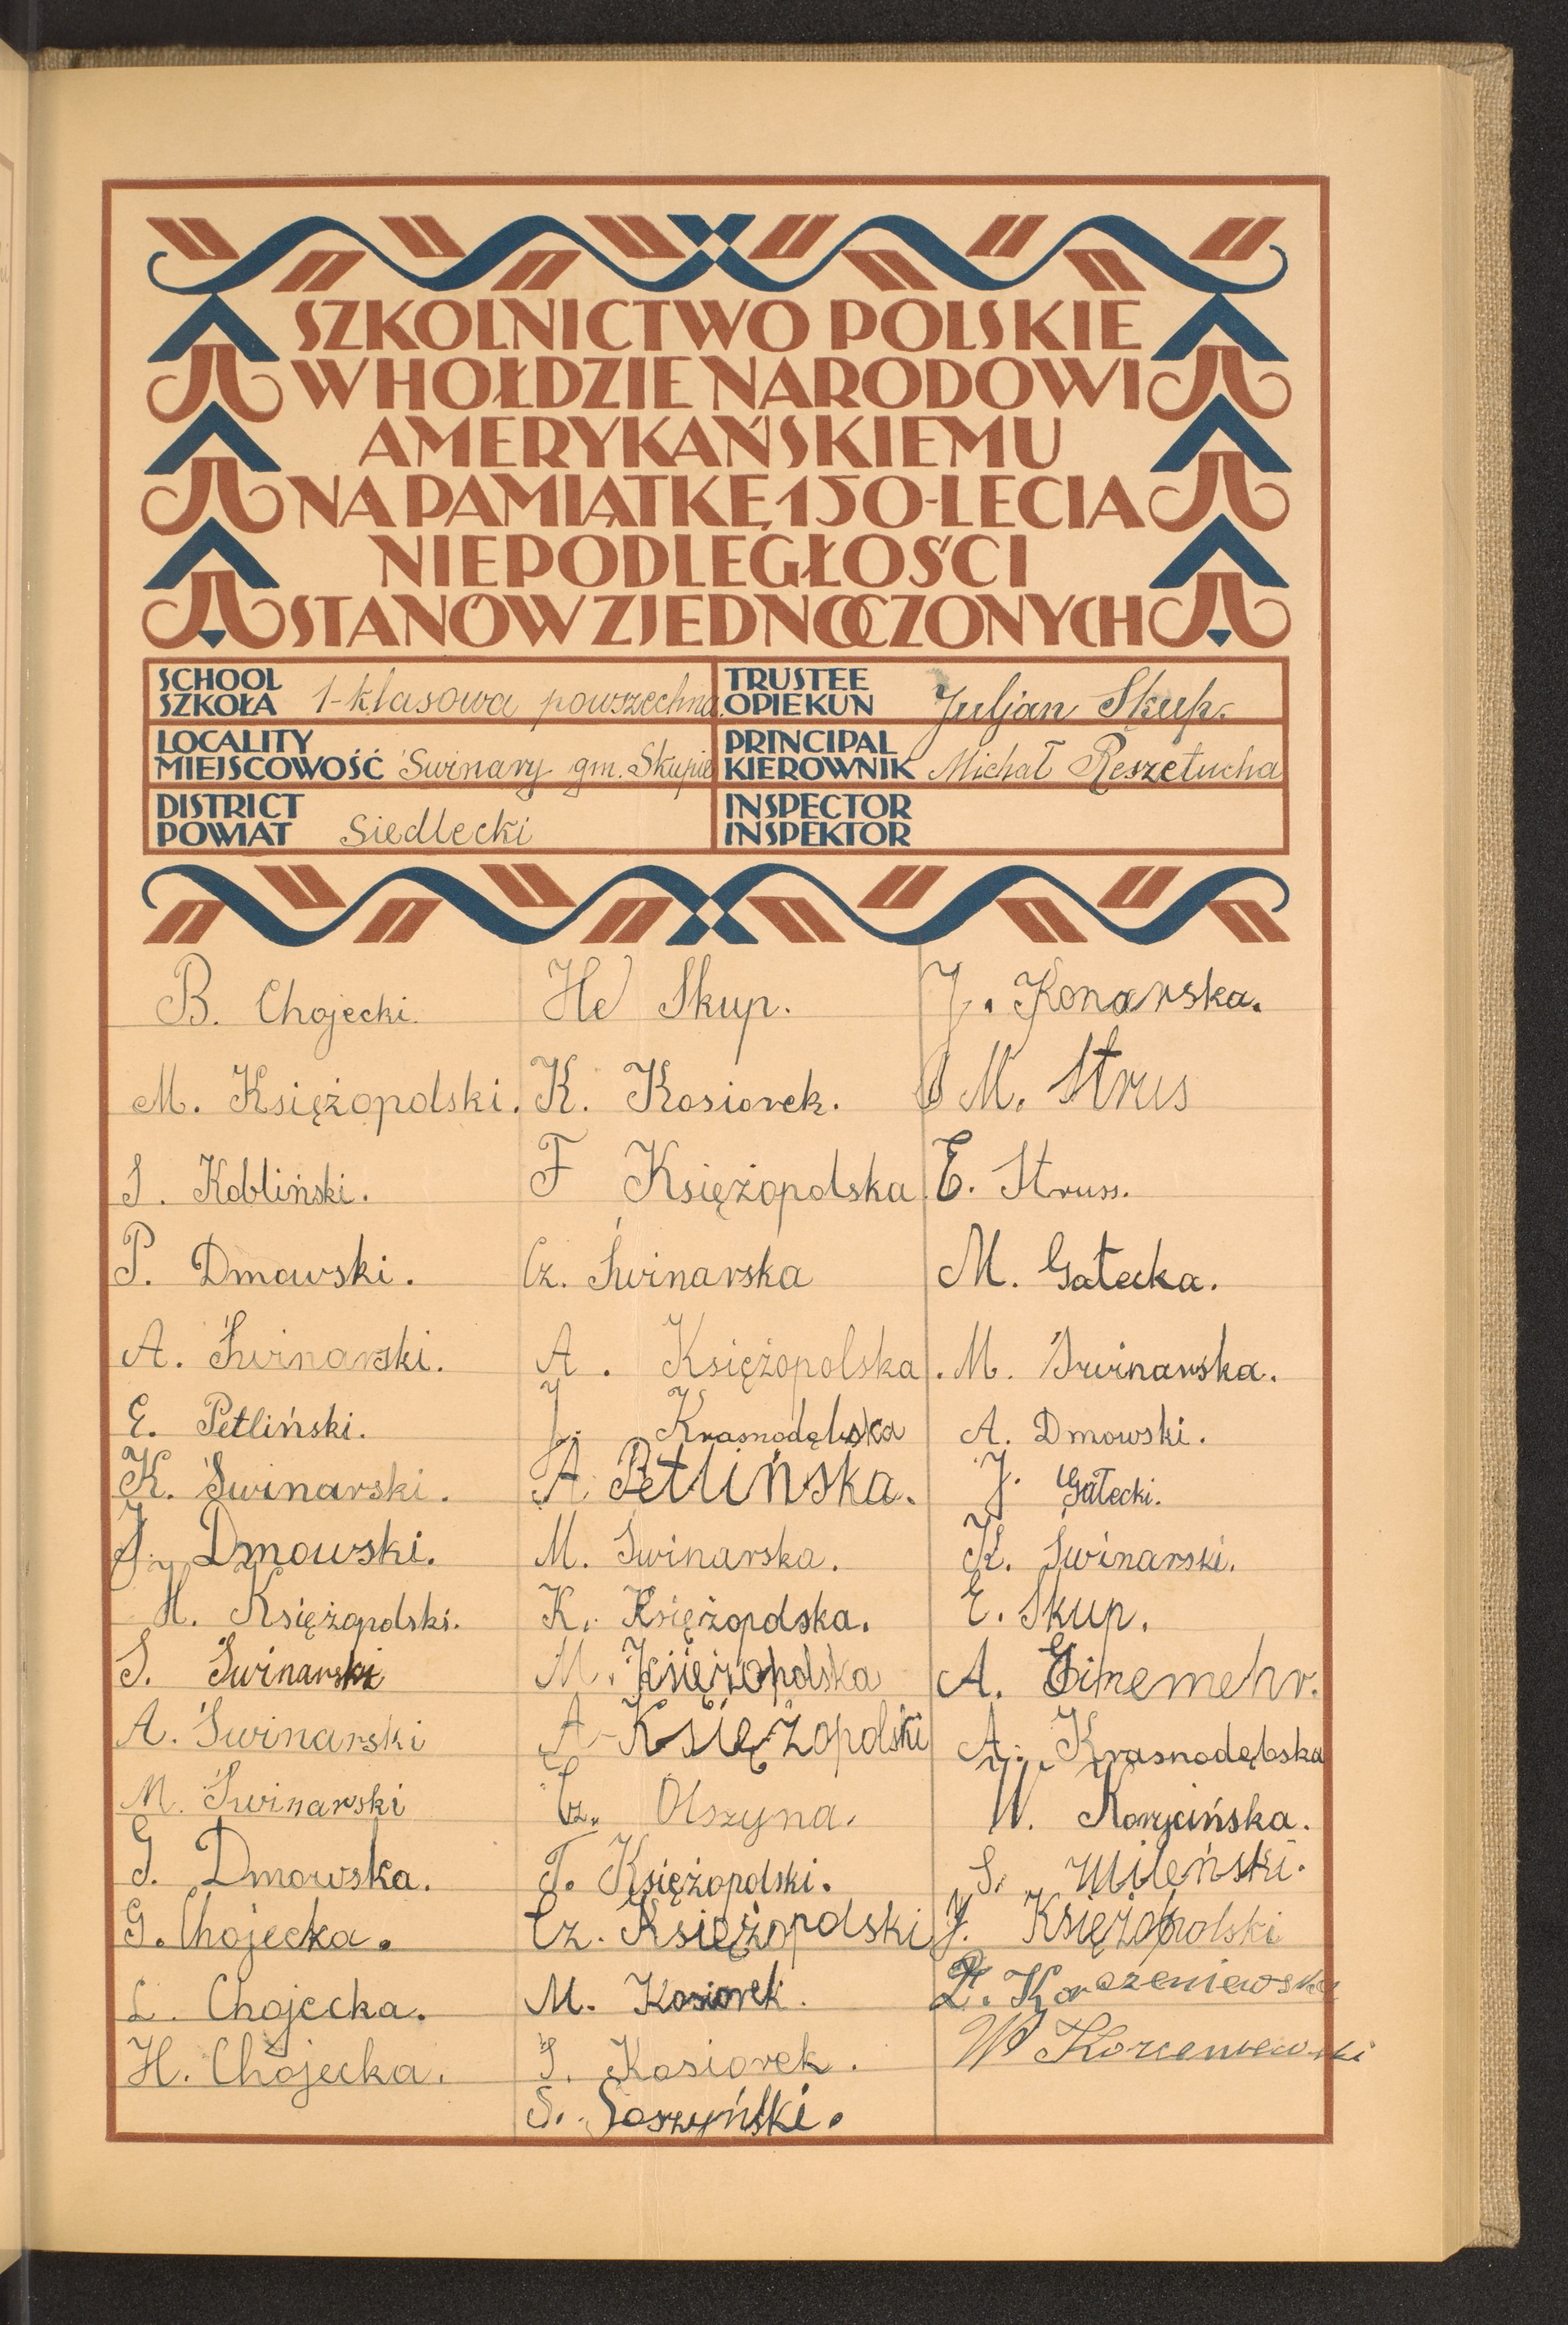 SZKOLNICTWO POLSKIE
W HOŁDZIE NARODOWI
AMERYKAŃSKIEMU
NA PAMIĄTKĘ 150-LECIA
NIEPODLEGŁOŚCI
STANÓW ZJEDNOCZONYCH
SCHOOL
SZKOŁA 1-klasowa powszechna
LOCALITY
MIEJSCOWOŚĆ Świnary gm. Skupie
DISTRICT
POWIAT Siedlecki
TRUSTEE
OPIEKUN Juljan Skup.
PRINCIPAL
KIEROWNIK Michał Reszetucha
INSPECTOR
INSPEKTOR
B. Chojecki.
M. Księżopolski.
S. Kobliński.
P. Dmowski.
A. Świnarski.
E. Petliński.
K. Świnarski.
J. Dmowski.
H. Księżopolski.
S. Świnarski
A. Świnarski
M. Świnarski
G. Dmowska.
G. Chojecka.
L. Chojecka.
H. Chojecka.
He Skup.
K. Kosiorek.
F Księżopolska
Cz. Świnarska
A. Księżopolska.
J. Krasnodębska
A. Petlińska.
M. Świnarska.
K. Księżopolska.
M. Księżopolska
A Księżopolski
Cz. Olszyna.
T. Księżopolski.
Cz. Księżopolski
M. Kosiorek.
S. Kosiorek.
S. Soszyński.
J. Konarska.
M. Strus
E. Struss.
M. Gałecka.
M. Świnarska.
A. Dmowski.
J. Gałecki.
K. Świnarski.
E. Skup.
A.
A. Krasnodębska
W. Korycińska.
S. Mileński.
J. Księżopolski
Z. Korczeniewska
W Korceniewski